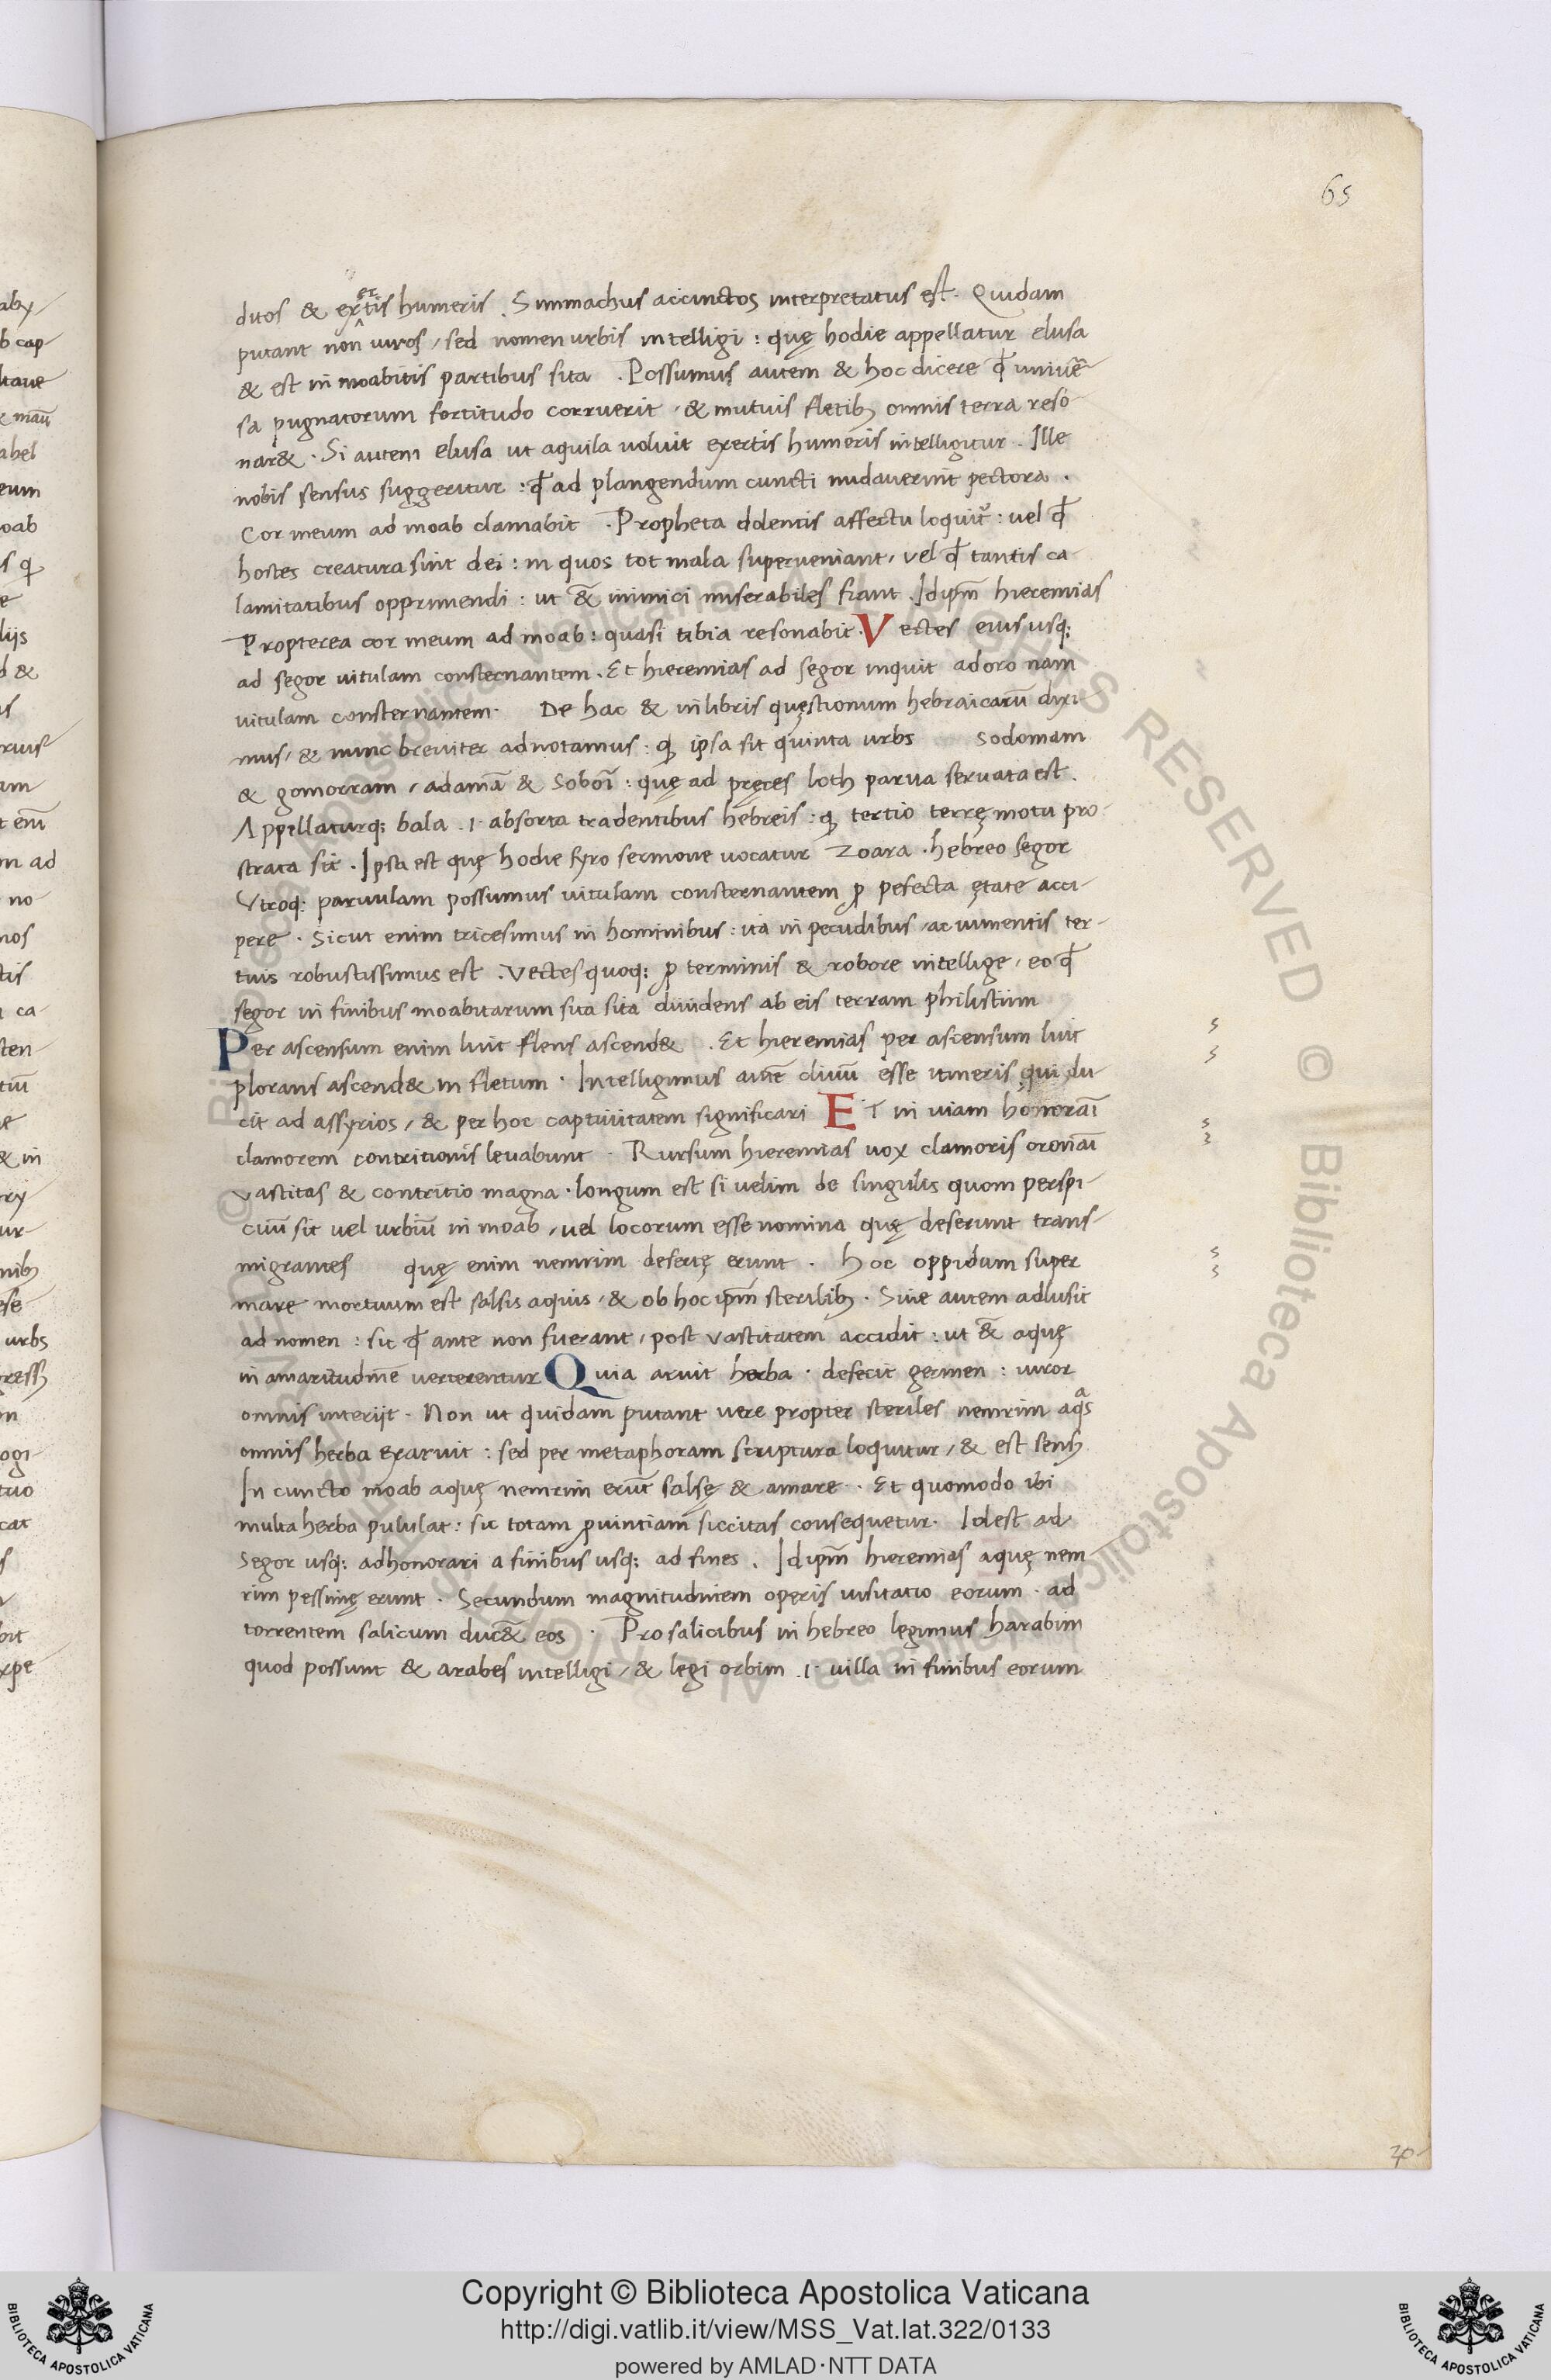 65
duos & ex^er^tis humeris . Simmachus accinctos interpretatus est . Quidam
putant non viros / sed nomen urbis intelligi : quę hodie appellatur elusa
& est in moabitis partibus sita . Possumus autem & hoc dicere qđ univẽ-
sa pugnatorum fortitudo corruerit / & mutuis fletibꝫ omnis terra reso-
nar& . Si autem elusa ut aquila voluit exertis humeris intelligitur . Ille
nobis sensus suggeritur : qđ ad plangendum cuncti nudaverint pectora .
Cor meum ad moab clamabit . Propheta dolentis affectu loquit᷑ : vel qđ
hostes creatura sint dei : in quos tot mala superveniant / vel qđ tantis ca-
lamitatibus opprimendi : ut &̃ inimici miserabiles fiant . Idip̃m hieremias
Propterea cor meum ad moab : quasi tibia resonabit . Vectes eius usqꝫ
ad segor vitulam consternantem . Et hieremias ad segor inquit ad oro nam
vitulam consternantem . De hac & in libris quęstionum hebraicarũ dixi-
mus / & nunc breviter adnotamus : ꝙ ipsa sit quinta urbs sodomam
& gomorram / adamã & Soboĩ : quę ad pręces loth parva servata est .
Appellaturqꝫ bala .i. absorta tradentibus hebreis : ꝙ tertio terrę motu pro-
strata sit . Ipsa est quę hodie syro sermone vocatur Zoara . hebreo segor
Vtroqꝫ parvulam possumus vitulam consternantem ꝓ pefecta ętate acci-
pere . Sicut enim tricesimus in hominibus : ita in pecudibus / ac iumentis ter-
tius robustissimus est . Vectes quoqꝫ ꝓ terminis & robore intellige / eo qđ
segor in finibus moabitarum sita sita dividens ab eis terram philistiim
Per ascensum enim luit flens ascend& . Et hieremias per ascensum luit
plorans ascend& in fletum . Intelligimus aut̃ clivũ esse itineris qui du-
cit ad assyrios / & per hoc captivitatem significari ET in viam honoraĩ
clamorem contritionis levabunt . Rursum hieremias vox clamoris oronaĩ
Vastitas & contritio magna . longum est si velim de singulis quom perspi-
cuũ sit vel urbiũ in moab / vel locorum esse nomina quę deserunt trans-
migrantes quę enim nemrim desertę erunt . hoc oppidum super
mare mortuum est salsis aquis / & ob hoc ip̃m sterilibꝫ . Sive autem adlusit
ad nomen : sic qđ ante non fuerant / post vastitatem accidit : ut &̃ aquę
in amaritudinẽ verterentur Quia aruit herba . defecit germen : viror
omnis interijt . Non ut quidam putant vere propter steriles nemrim aq^a^s
omnis herba exaruit : sed per metaphoram scriptura loquitur / & est sensꝫ
In cuncto moab aquę nemrim erũt salsę & amare . Et quomodo ibi
multa herba pululat : sic totam ꝓvintiam siccitas consequetur . Idest ad
Segor usqꝫ ad honorari a finibus usqꝫ ad fines . Idip̃m hieremias aquę nem-
rim pessimę erunt . Secundum magnitudinem operis visitatio eorum . ad
torrentem salicum duc&̃ eos . Pro salicibus in hebreo legimus harabim
quod possunt & arabes intelligi / & legi orbim .i. villa in finibus eorum
Copyright © Biblioteca Apostolica Vaticana
http://digi.vatlib.it/view/MSS_Vat.lat.322/0133
powered by AMLAD·NTT DATA